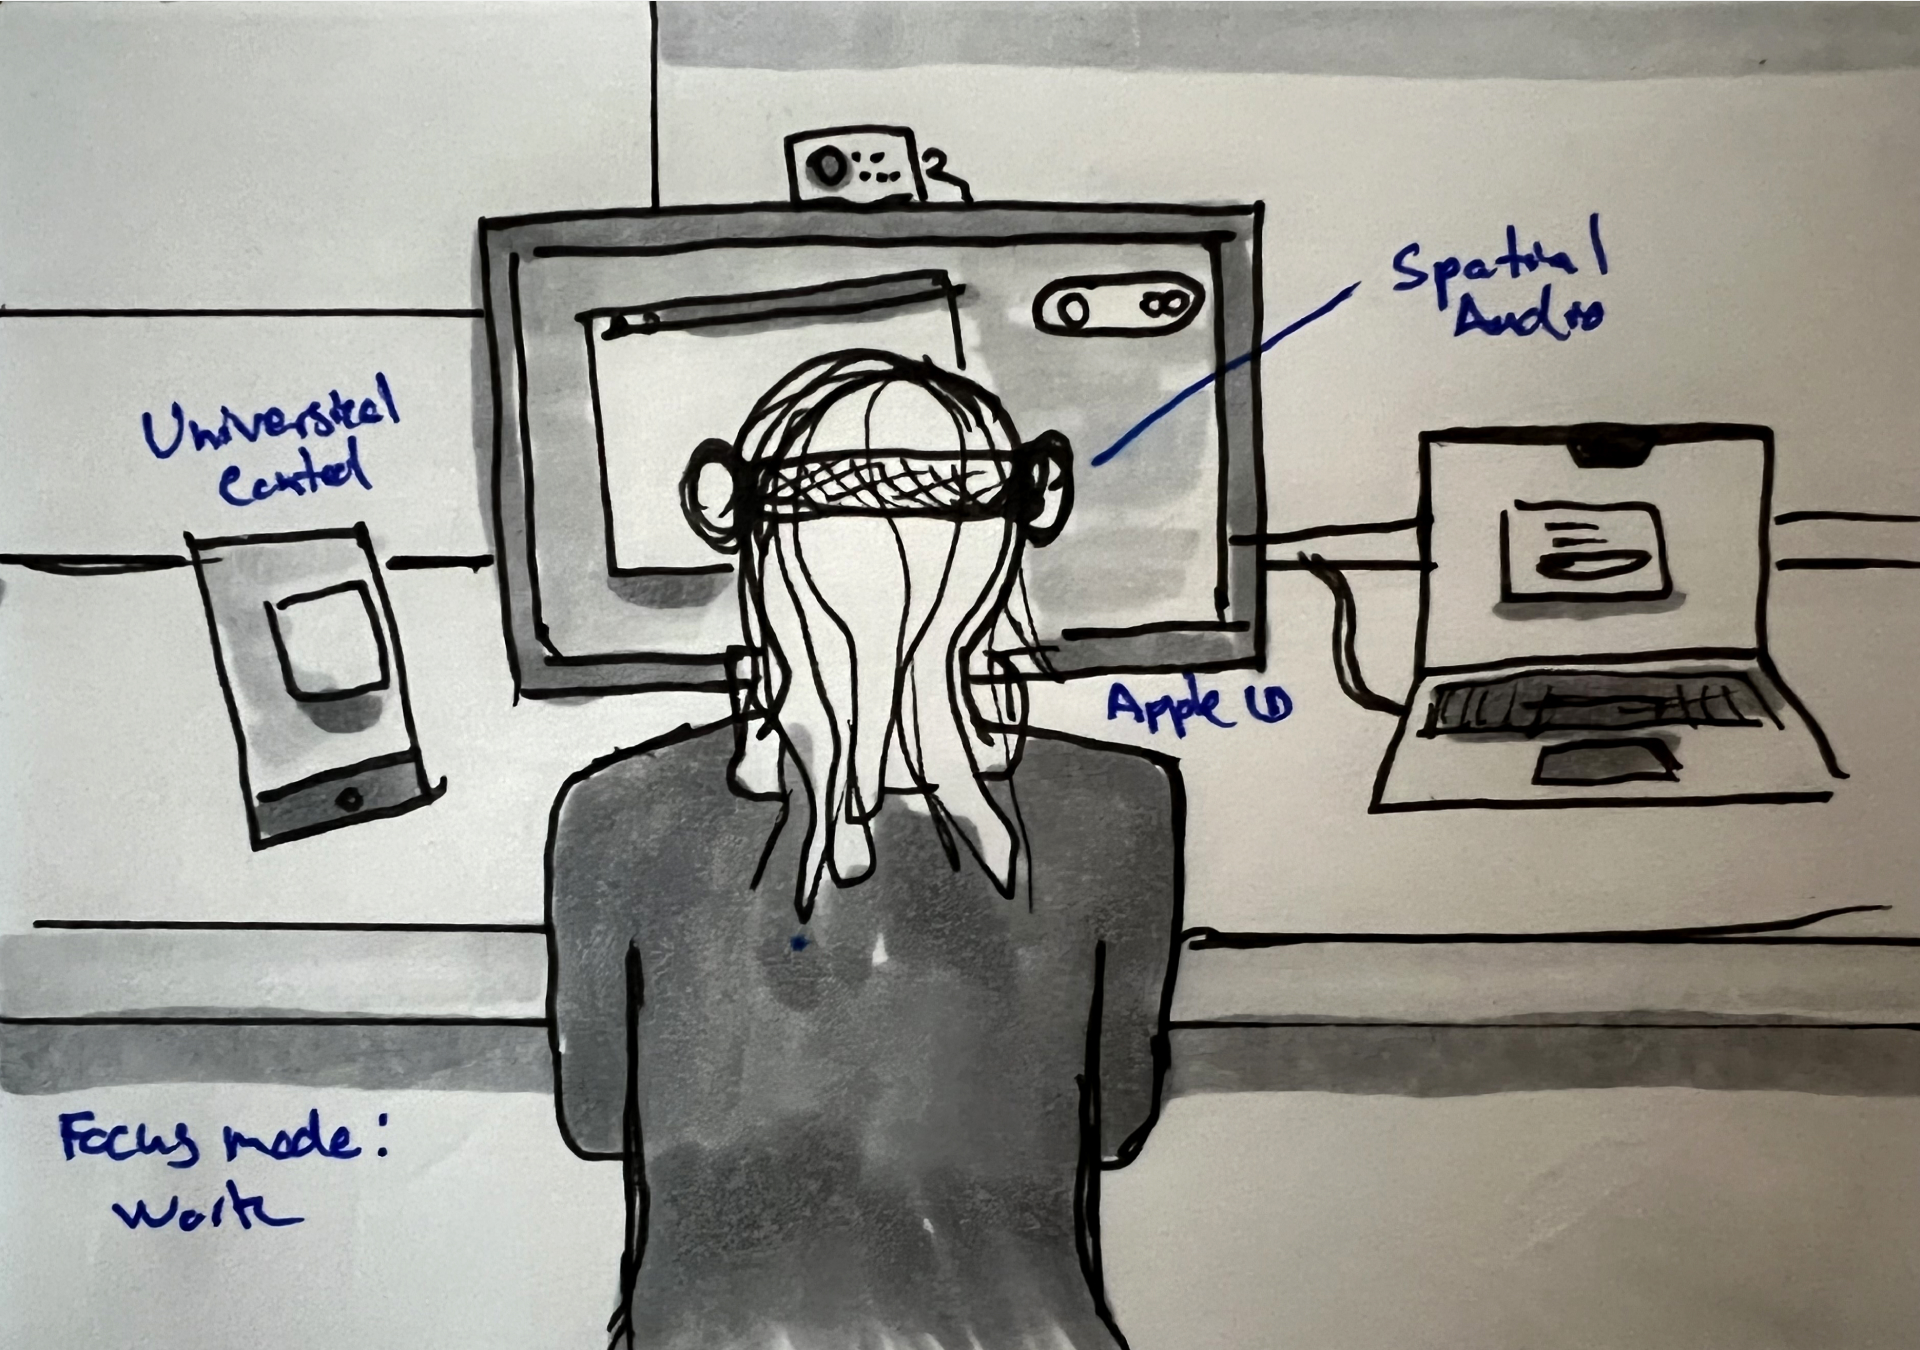 Spatial
Audio
Universal
Control
Apple ID
Focus mode:
Work